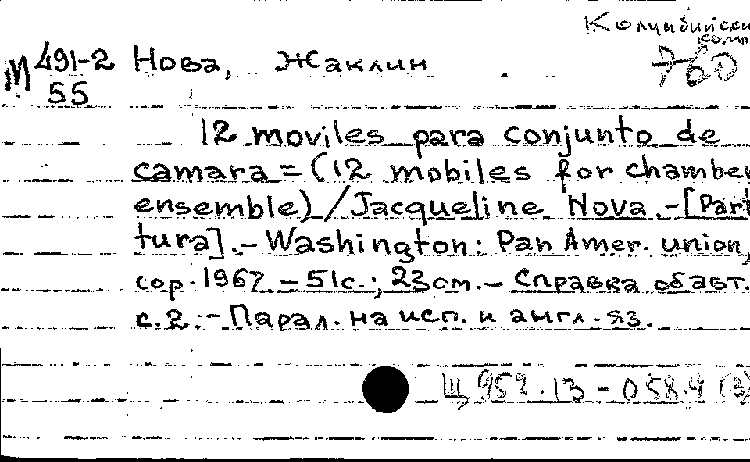 Колумбийски
комп
М 491-2 Нова, Жаклин 760
55
12 moviles para conjunto de
camara = (12 mobiles for chamber
ensemble) / Jacqueline Nova. - [Part
tura]. - Washington: Pan Amer. union,
cop. 1967. - 51с.; 23см. - Справка об авт.
с. 2. - Парал. на исп. и англ. яз.
Щ 952.13-058.4 (3)